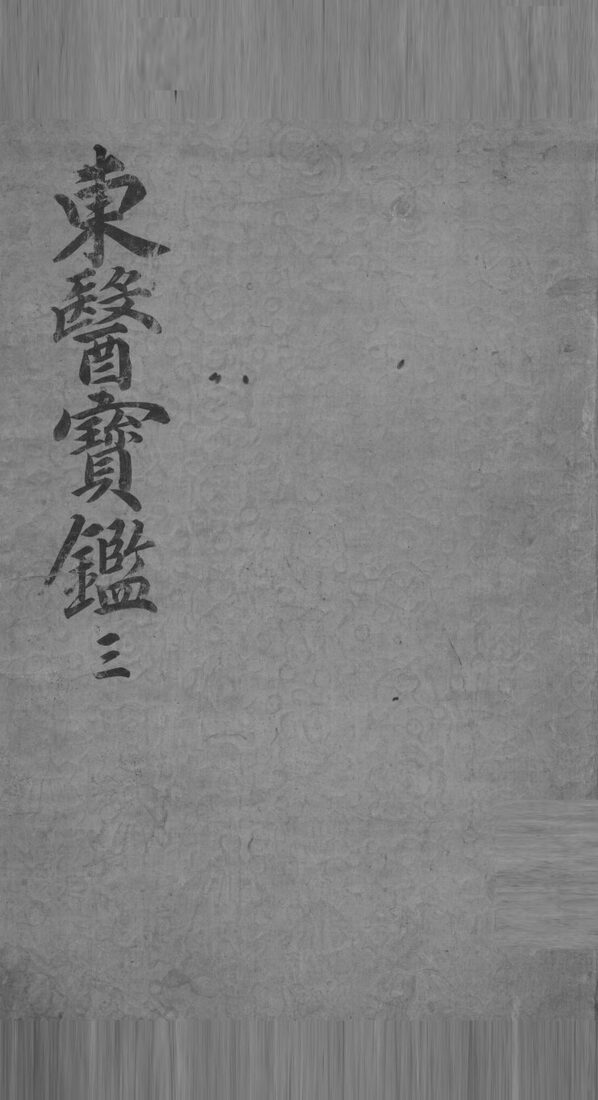 東醫寶鑑 三